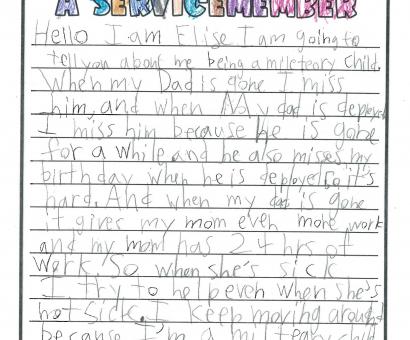 A SERVICEMEMBER
Hello I am Elise I am going to
tell you about me being a mileteary child.
When my Dad is gone I miss
him, and when My dad is deployed
I miss him because he is gone
for a while and he also misses my
birthday when he is deployed so it's
hard. And when my dad is gone
it gives my mom even more work
and my mom has 24 hrs of
work. So when she's sick
I try to help even when she's
not sick. I keep moving around
because I'm a mileteary child